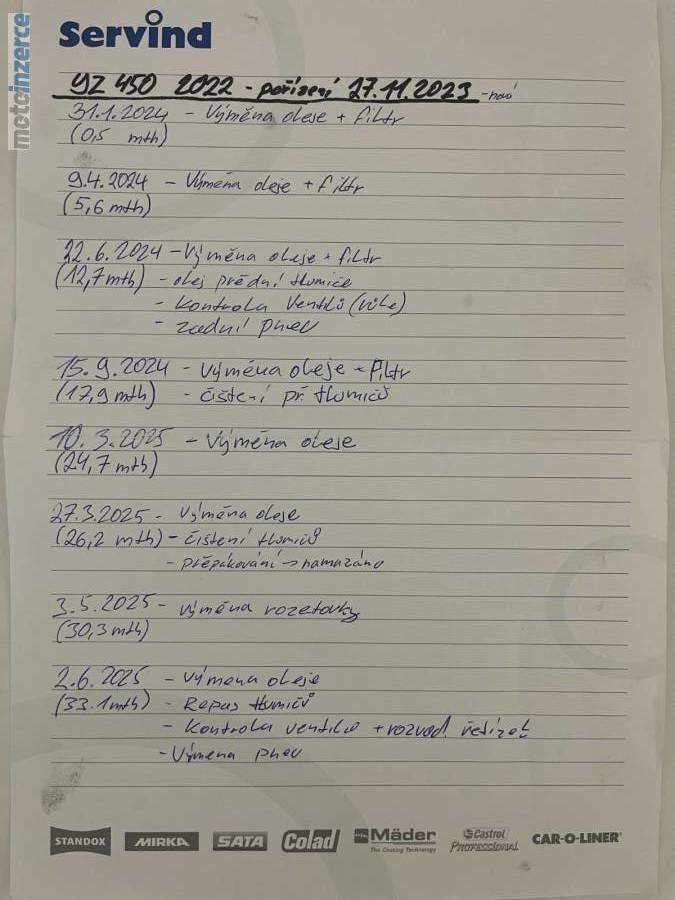 motoinzerce
Servind
YZ 450 2022 - pořízení 27.11.2023 - nová
31.1.2024 - Výměna oleje + filtr
(0,5 mth)
9.4.2024 - Výměna oleje + filtr
(5,6 mth)
22.6.2024 - Výměna oleje + filtr
(12,7 mth) - olej přední tlumiče
- Kontrola Ventilů (vůle)
- zadní pneu
15.9.2024 - Výměna oleje + filtr
(17,9 mth) - čištění př. tlumičů
10.3.2025 - Výměna oleje
(24,7 mth)
27.3.2025 - Výměna oleje
(26,2 mth) - čištění tlumičů
- přepákování -> namazáno
3.5.2025 - výměna rozetovky
(30,3 mth)
2.6.2025 - výmena oleje
(33.1 mth) - Repas tlumičů
- Kontrola ventilů + rozvod. řetízek
- Výmena pneu
STANDOX MIRKA SATA Colad Mäder The Coating Technology Castrol PROFESSIONAL CAR-O-LINER